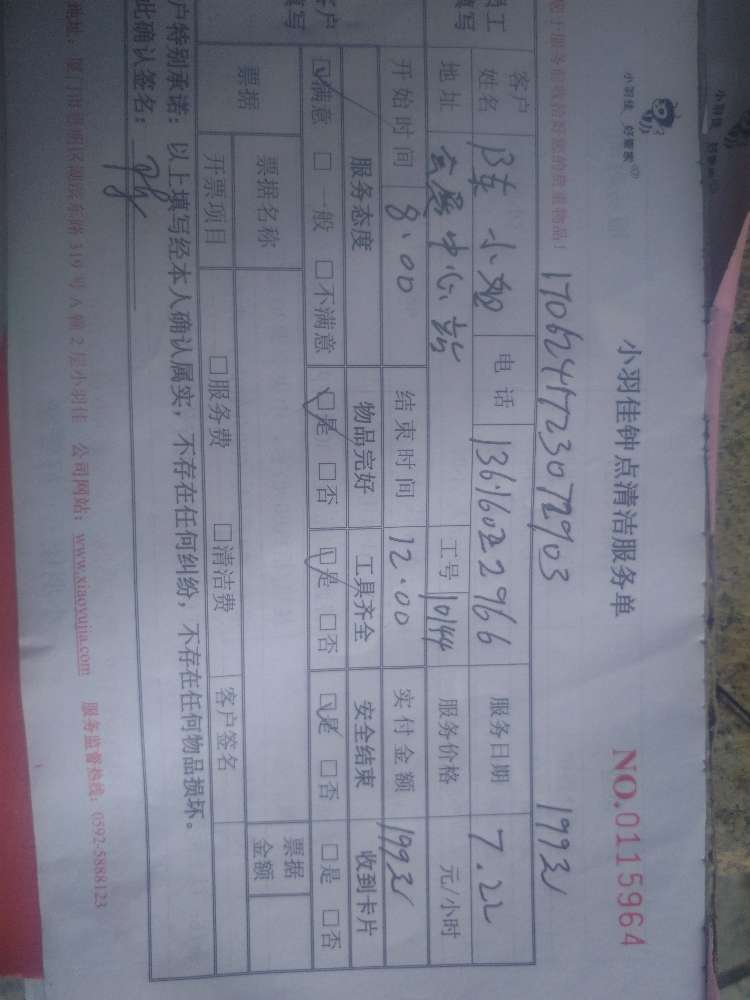 小羽佳 好管家
小羽佳钟点清洁服务单
NO.0115964
1706241723072903
客户姓名 陈小姐 电话 13616022966 服务日期 7.22
地址 中心站 工号 10144 服务价格 元/小时
开始时间 8:00 结束时间 12:00 实付金额
服务态度 物品完好 工具齐全 安全结束 收到卡片
☑满意 □一般 □不满意 ☑是 □否 ☑是 □否 ☑是 □否 □是 □否
票据 票据名称 票据金额
开票项目 □服务费 □清洁费 客户签名
户特别承诺：以上填写经本人确认属实，不存在任何纠纷，不存在任何物品损坏。
此确认签名：
地址：厦门市思明区湖滨东路319号A幢2层小羽佳 公司网站：www.xiaoyujia.com 服务监督热线：0592-5888123